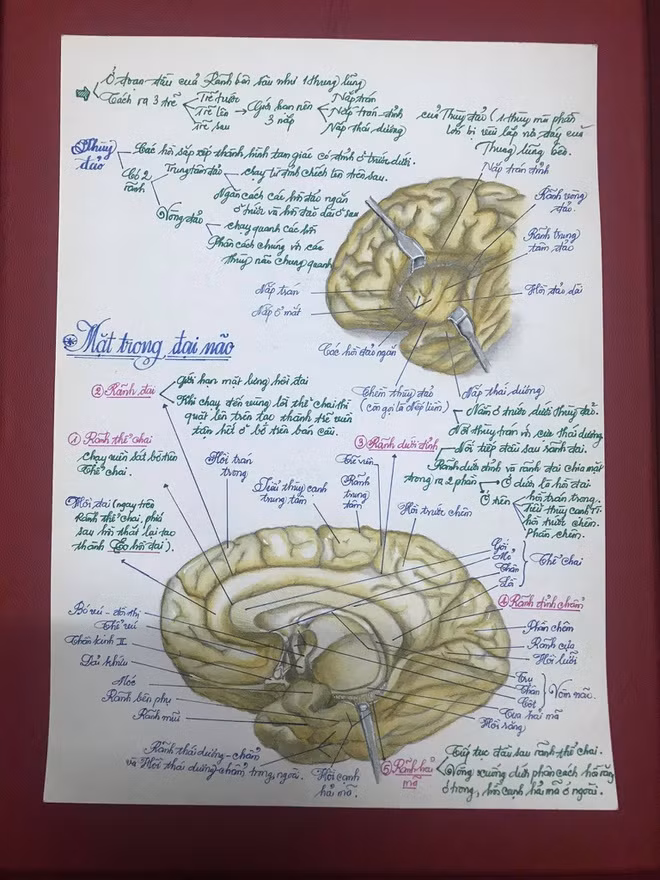 Ở đoạn đầu của Rãnh bên sâu như 1 thung lũng
Tách ra 3 trẽ
Trẽ trước
Trẽ lên
Trẽ sau
Giới hạn nên
3 nắp
Nắp trán
Nắp trán-đỉnh
Nắp thái dương
của Thùy đảo (1 thùy mà phần
lớn bị vùi lấp ở đáy của
Thung lũng bên.
Thùy
đảo
Các hồi sắp xếp thành hình tam giác có đỉnh ở trước dưới.
Có 2
rãnh
Trung tâm đảo
chạy từ đỉnh chếch lên trên sau.
Ngăn cách các hồi đảo ngắn
ở trước và hồi đảo dài ở sau
Vòng đảo
chạy quanh các hồi
Phân cách chúng với các
thùy não chung quanh
Nắp trán đỉnh
Rãnh vòng
đảo.
Rãnh trung
tâm đảo
Hồi đảo dài
Nắp trán
Nắp ổ mắt
Các hồi đảo ngắn
Thềm thùy đảo
(còn gọi là Nếp liềm)
Nắp thái dương
Mặt trong đại não
② Rãnh đai
Giới hạn mặt bằng hồi đai
Khi chạy đến vùng lồi thể chai thì
quặt lên trên tạo thành trẽ viền
tận hết ở bờ trên bán cầu.
Nằm ở trước dưới thùy đảo.
Nối thùy trán với cực thái dương
① Rãnh thể chai
chạy viền sát bờ trên
Thể chai.
③ Rãnh dưới đỉnh
Nối tiếp đầu sau rãnh đai.
Rãnh dưới đỉnh và rãnh đai chia mặt
trong ra 2 phần
Ở dưới là hồi đai
Ở trên
hồi trán trong.
Tiểu thùy cạnh TT
hồi trước chêm.
Phần chêm.
Hồi đai (ngay trên
Rãnh thể chai, phía
sau hồi thắt lại tạo
thành Eo hồi đai).
Hồi trán
trong
Tiểu thùy cạnh
trung tâm
Trẽ viền
Rãnh
trung
tâm
Hồi trước chêm
Gối
Mỏ
Thân
Lồi
Thể chai
④ Rãnh đỉnh chẩm
Phần chêm
Rãnh cựa
Hồi lưỡi
Trụ
Thân
Cột
Vòm não.
Tua hải mã
Hồi răng
Bó vú - đồi thị
Thể vú
Thần kinh II
Dải khứu
Móc
Rãnh bên phụ
Rãnh mũi
Rãnh thái dương-chẩm
và Hồi thái dương-chẩm trong, ngoài.
Hồi cạnh
hải mã.
⑤ Rãnh hải
mã
Tiếp tục đầu sau rãnh thể chai.
Vòng xuống dưới phân cách hồi răng
ở trong, hồi cạnh hải mã ở ngoài.